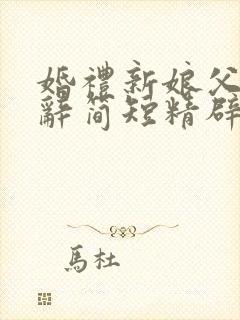 婚禮新娘父
辭簡短精辟
馬杜